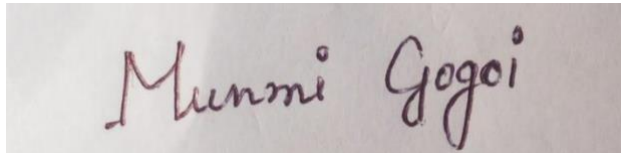 Munmi Gogoi